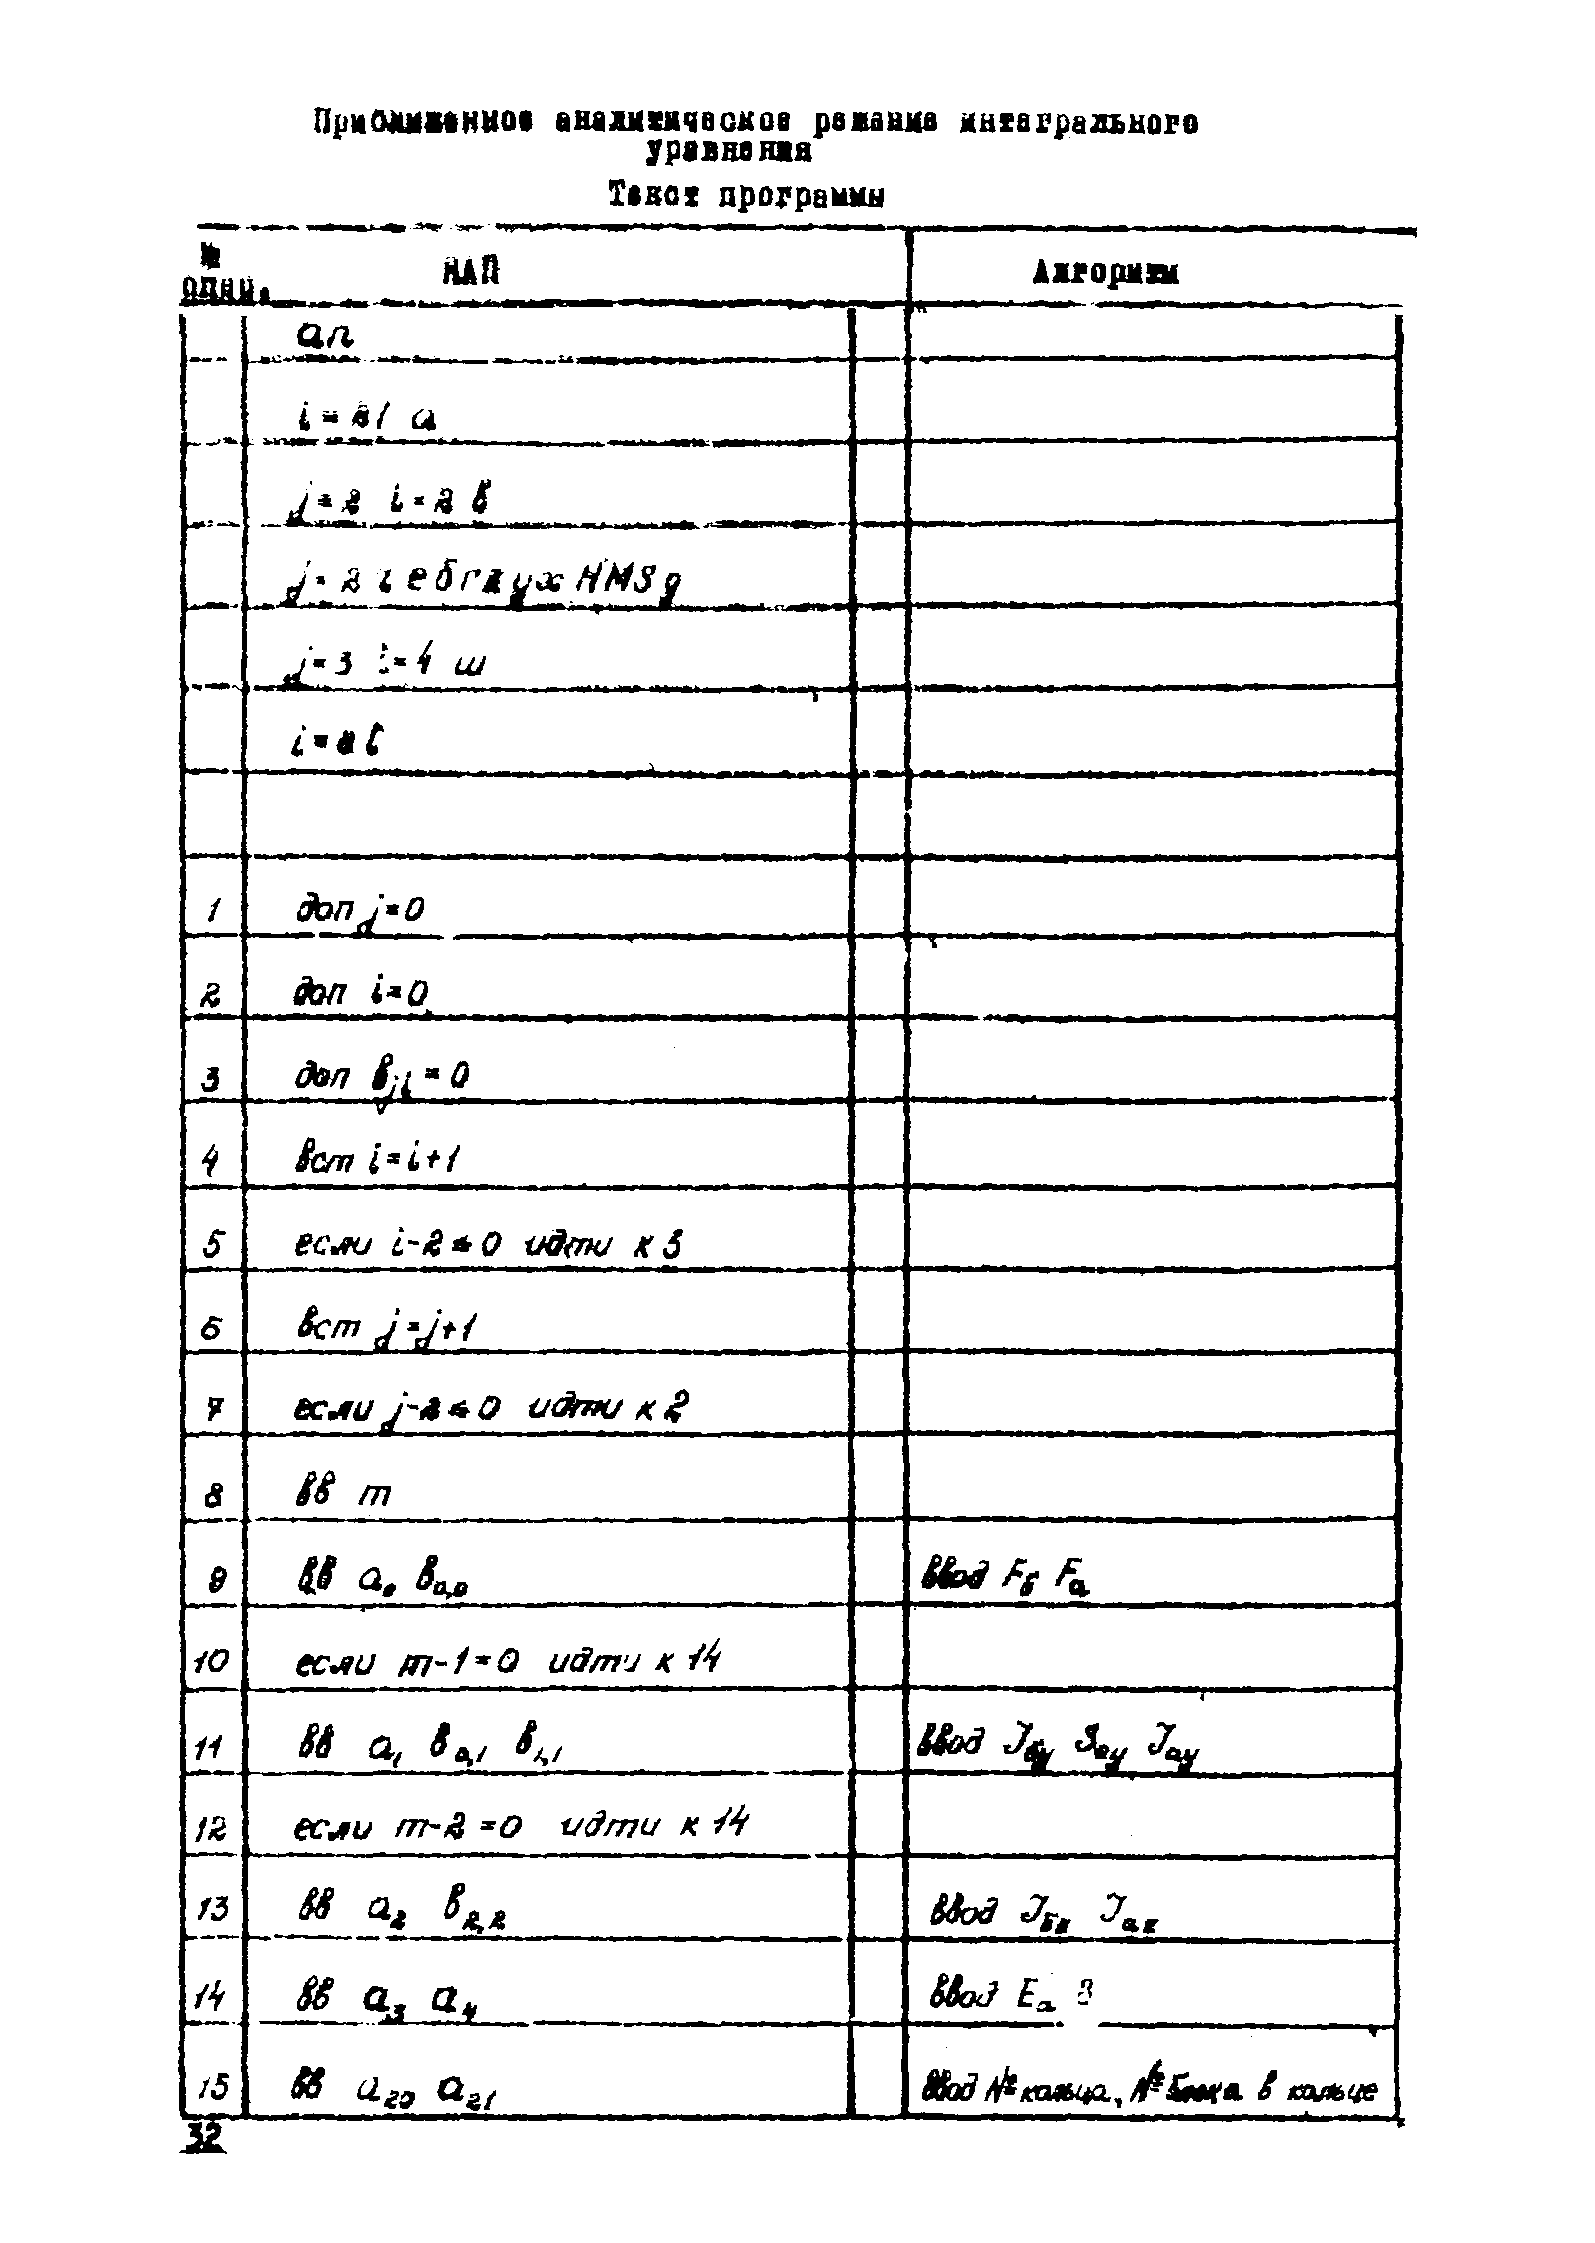 Приближенное аналитическое решение интегрального
уравнения
Текст программы
№ опии. НАП Алгоритм
ап
i = 21 а
j=2 i=2 в
j=2 i е б г ж у х Н М S д
j=3 i=4 ш
i=
1 доп j=0
2 доп i=0
3 доп вji=0
4 вст i=i+1
5 если i-2≤0 идти к 3
6 вст j=j+1
7 если j-2≤0 идти к 2
8 вв m
9 вв а₀ в₀,₀ ввод Fб Fа
10 если m-1=0 идти к 14
11 вв а₁ в₀,₁ в₁,₁ ввод Jбу Jау
12 если m-2=0 идти к 14
13 вв а₂ в₂,₂ ввод Jбх Jах
14 вв а₃ а₄ ввод Eа
15 вв а₂₀ а₂₁ ввод № кольца, № блока в кольце
32